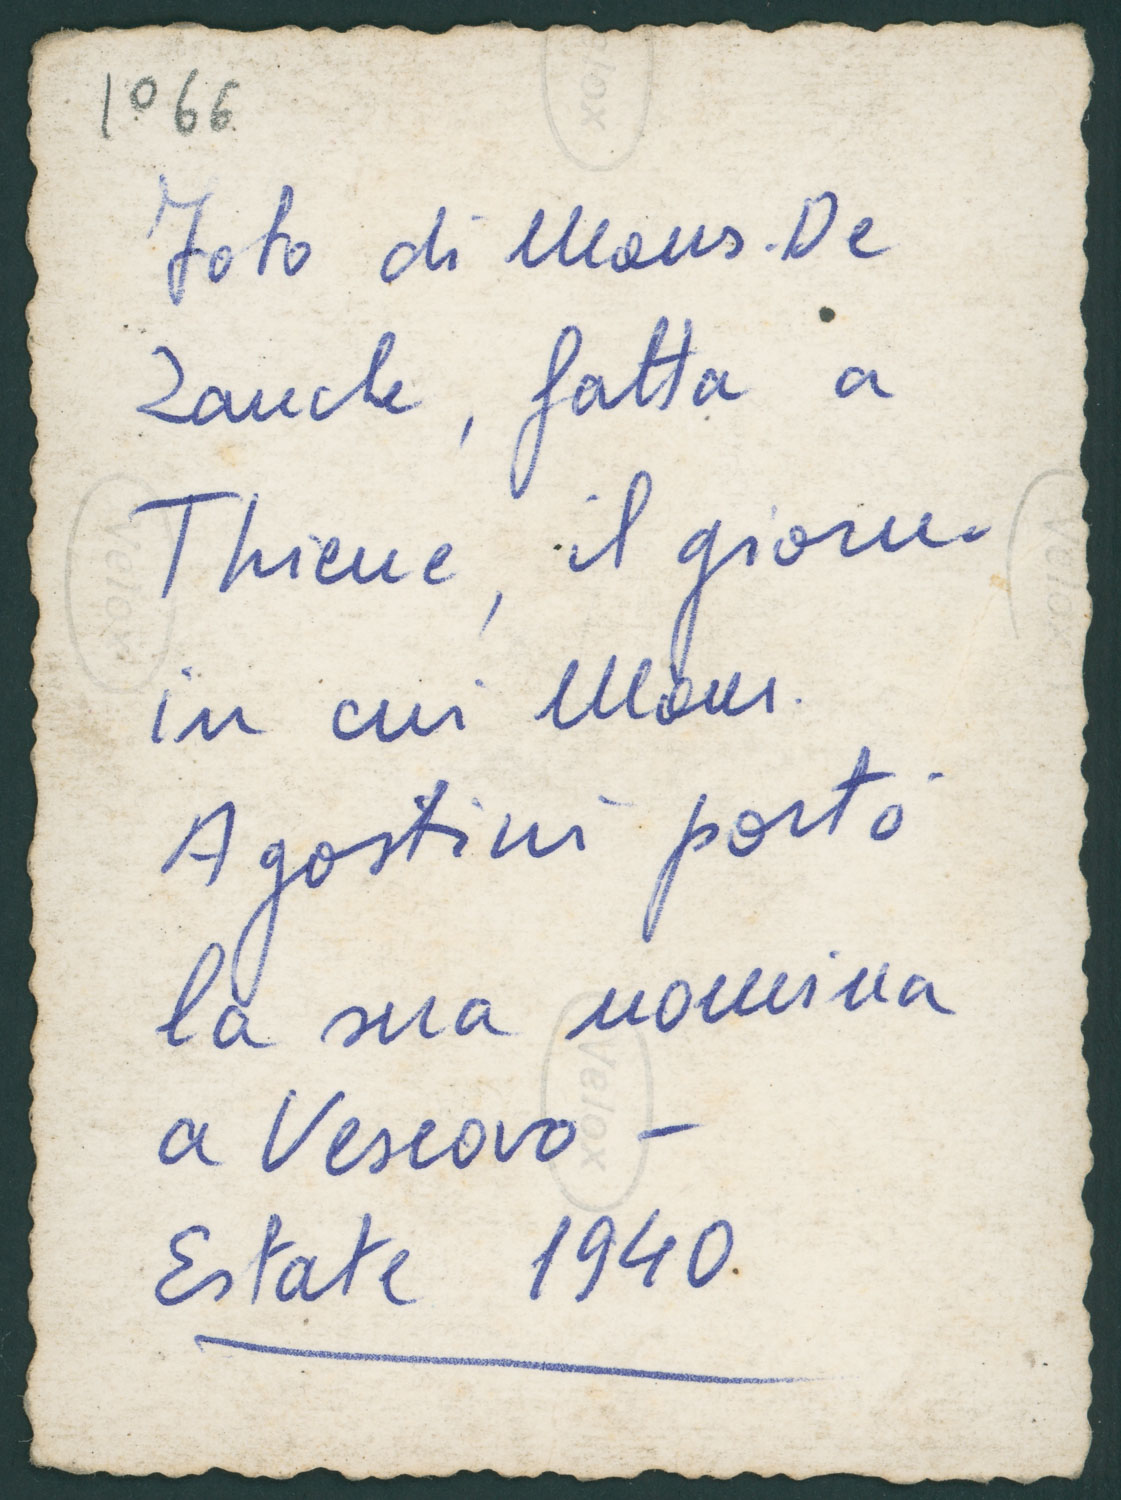 1066
Velox
Foto di Mons. De
Zanche, fatta a
Thiene, il giorno
in cui Mons.
Agostini portò
la sua nomina
a Vescovo –
Estate 1940.
Velox
Velox
Velox